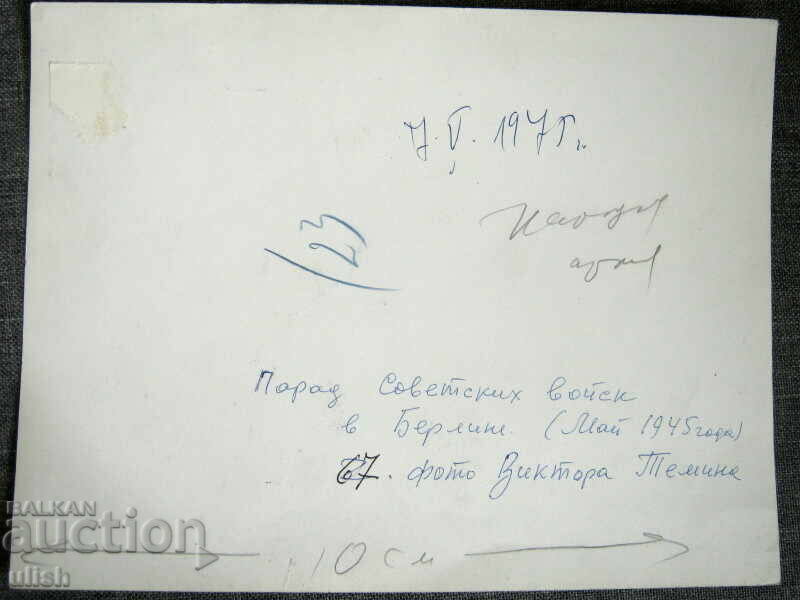 7.V.1975г.
123
Парад Советских войск
в Берлине. (Май 1945 года)
67. фото Виктора Темина
10 см
BALKAN
auction
ulish